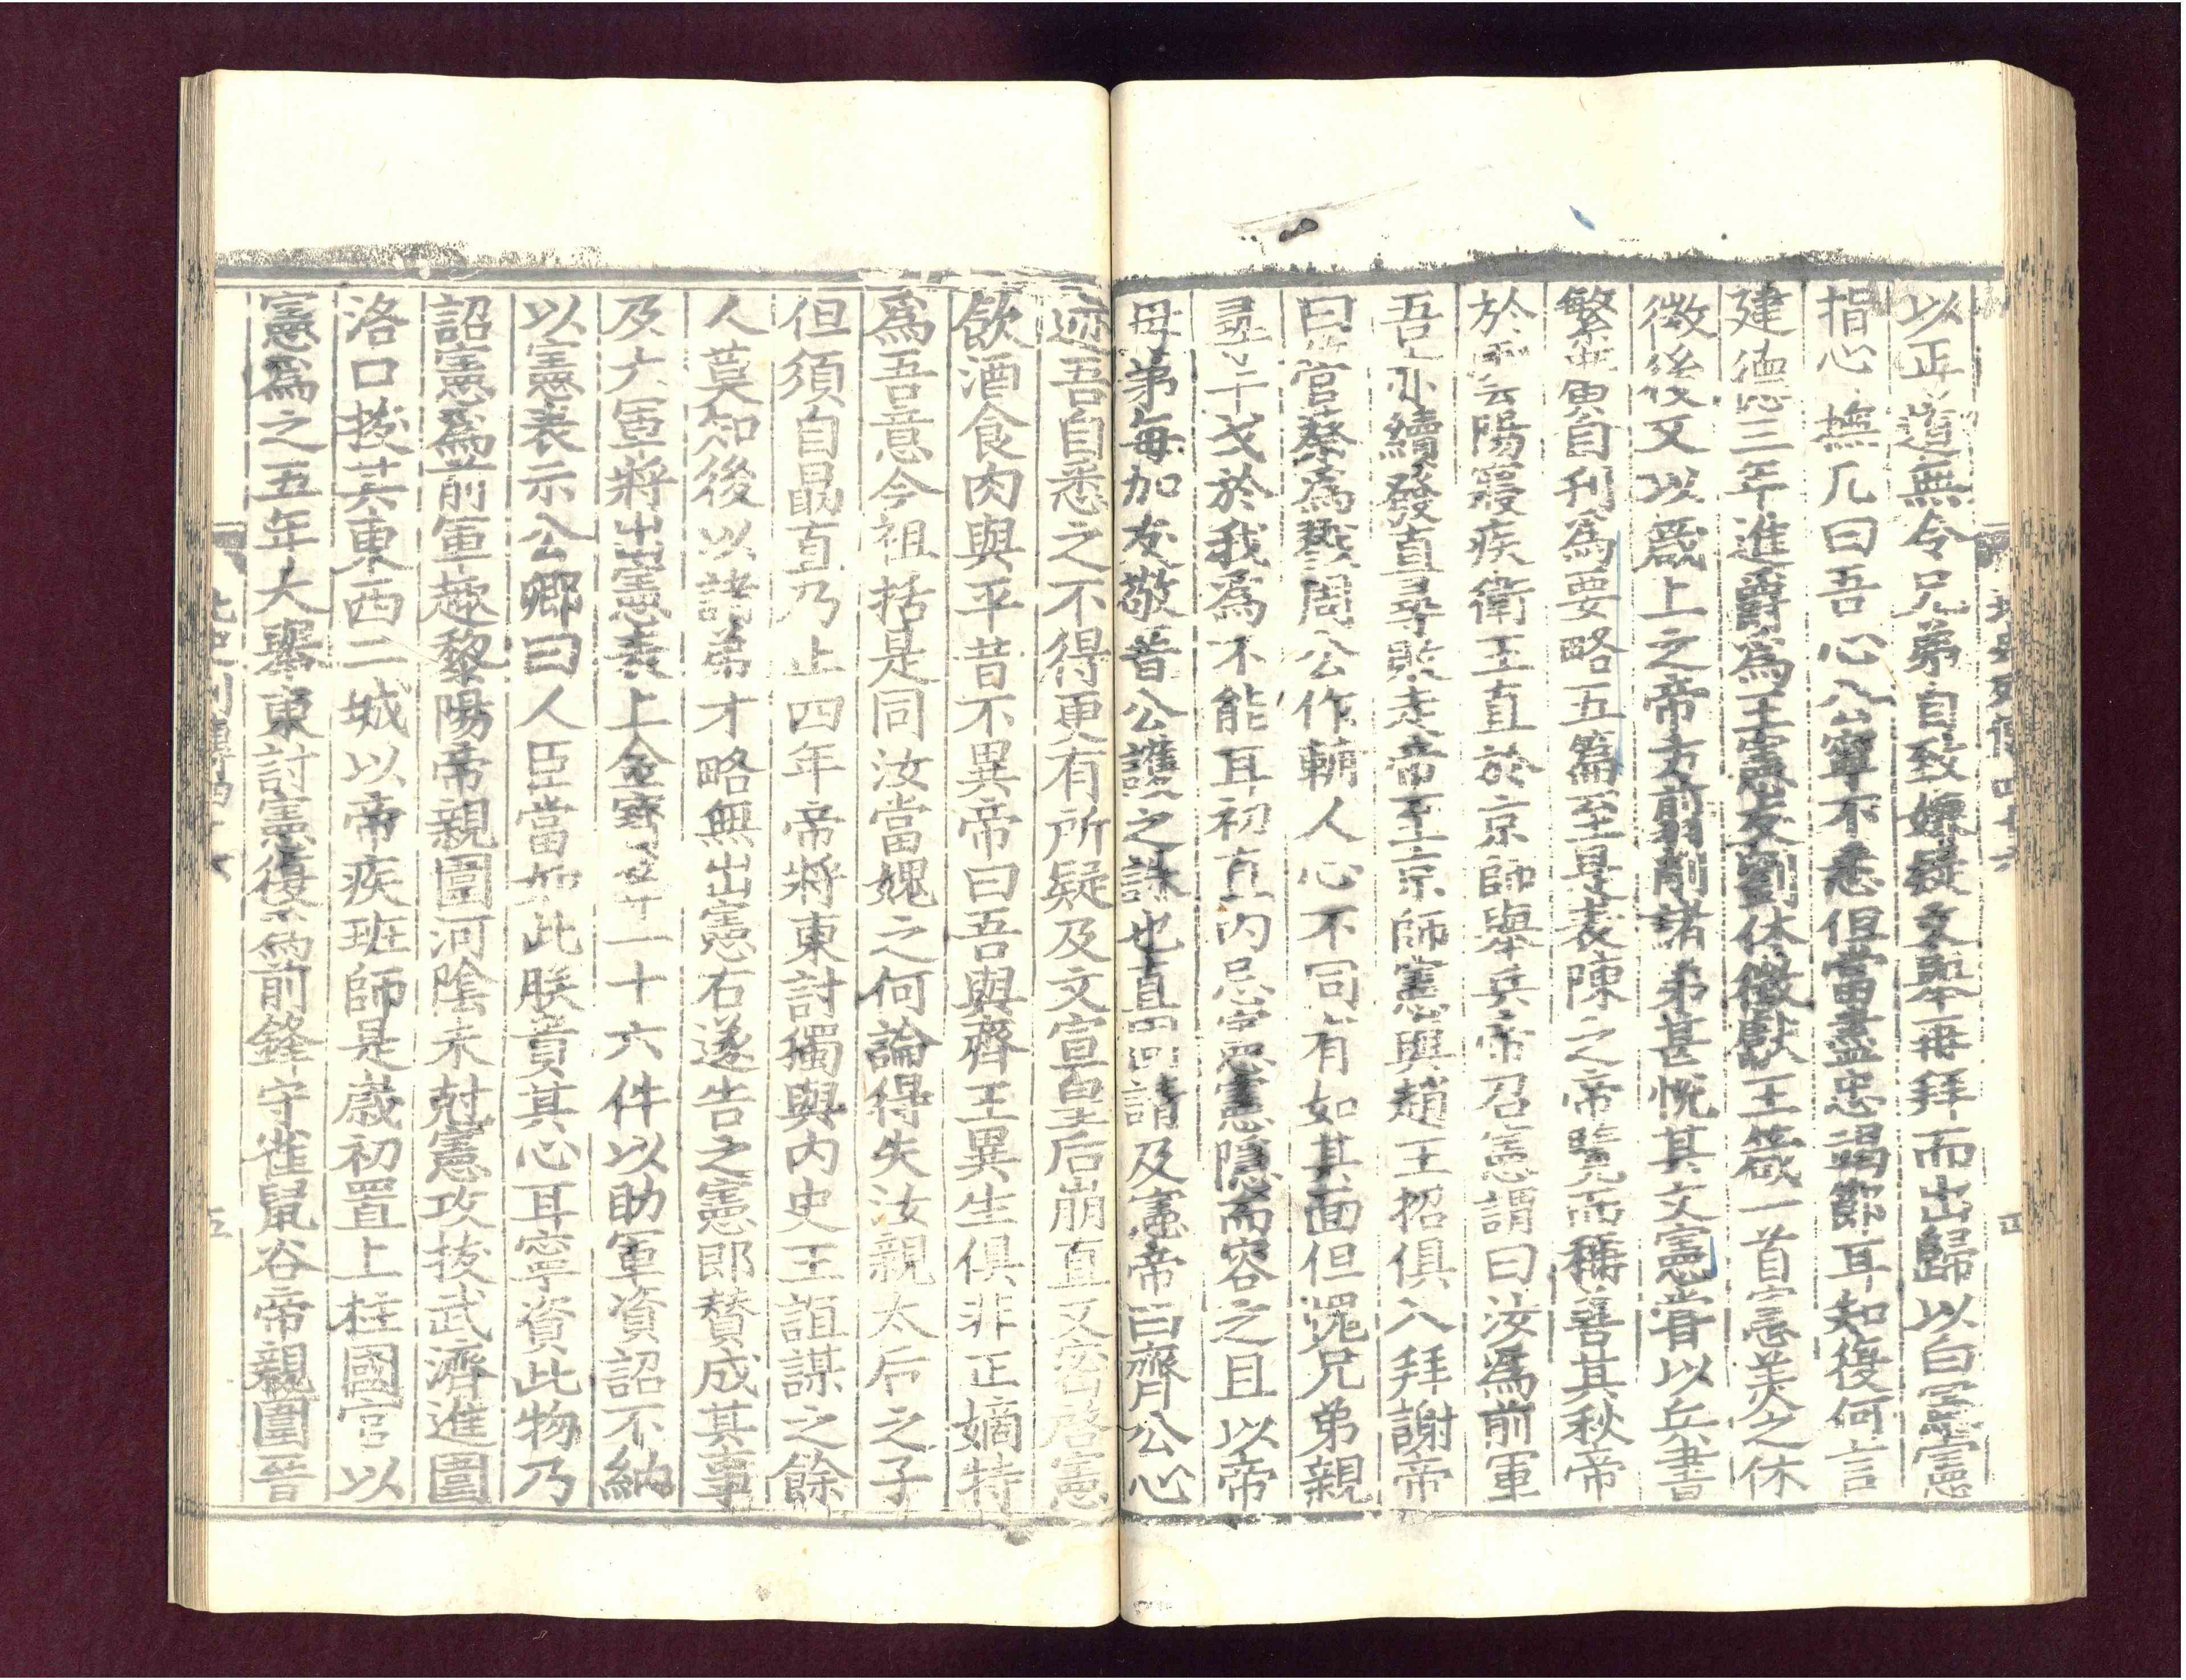 北史列傳四十六
四
以正道無令兄弟自致嫌疑文舉再拜而出歸以白憲憲
指心撫几曰吾心公寧不悉但當盡忠竭節耳知復何言
建德三年進爵爲王憲友劉休徵獻王箴一首憲美之休
徵後又以箴上之帝方翦削諸弟甚悅其文憲嘗以兵書
繁廣自刊爲要略五篇至是表陳之帝覽而稱善其秋帝
於雲陽寢疾衛王直於京師舉兵帝召憲謂曰汝爲前軍
吾亦續發直尋敗走帝至京師憲與趙王招俱入拜謝帝
曰管蔡爲戮周公作輔人心不同有如其面但愧兄弟親
尋干戈於我爲不能耳初直內忌憲憲隱而容之且以帝
母弟每加友敬晋公護之誅也直固請及憲帝曰齊公心
迹吾自悉之不得更有所疑及文宣皇后崩直又密啓憲
飲酒食肉與平昔不異帝曰吾與齊王異生俱非正嫡特
爲吾意今袒括是同汝當媿之何論得失汝親太后之子
但須自勗直乃止四年帝將東討獨與內史王誼謀之餘
人莫知後以諸弟才略無出憲右遂告之憲即賛成其事
及大軍將出憲表上金寶等一十六件以助軍資詔不納
以憲表示公卿曰人臣當如此朕貴其心耳寧資此物乃
詔憲爲前軍趣黎陽帝親圍河陰未尅憲攻拔武濟進圍
洛口拔其東西二城以帝疾班師是歲初置上柱國官以
憲爲之五年大舉東討憲復爲前鋒守雀鼠谷帝親圍晉
北史列傳四十六
五